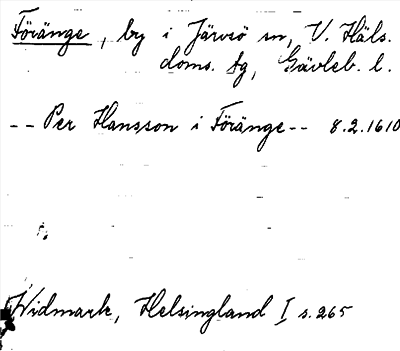 Föränge, by i Järvsö sn, V. Häls.
doms. tg, Gävleb. l.
-- Per Hansson i Föränge -- 8.2.1610
Widmark, Helsingland I s. 265